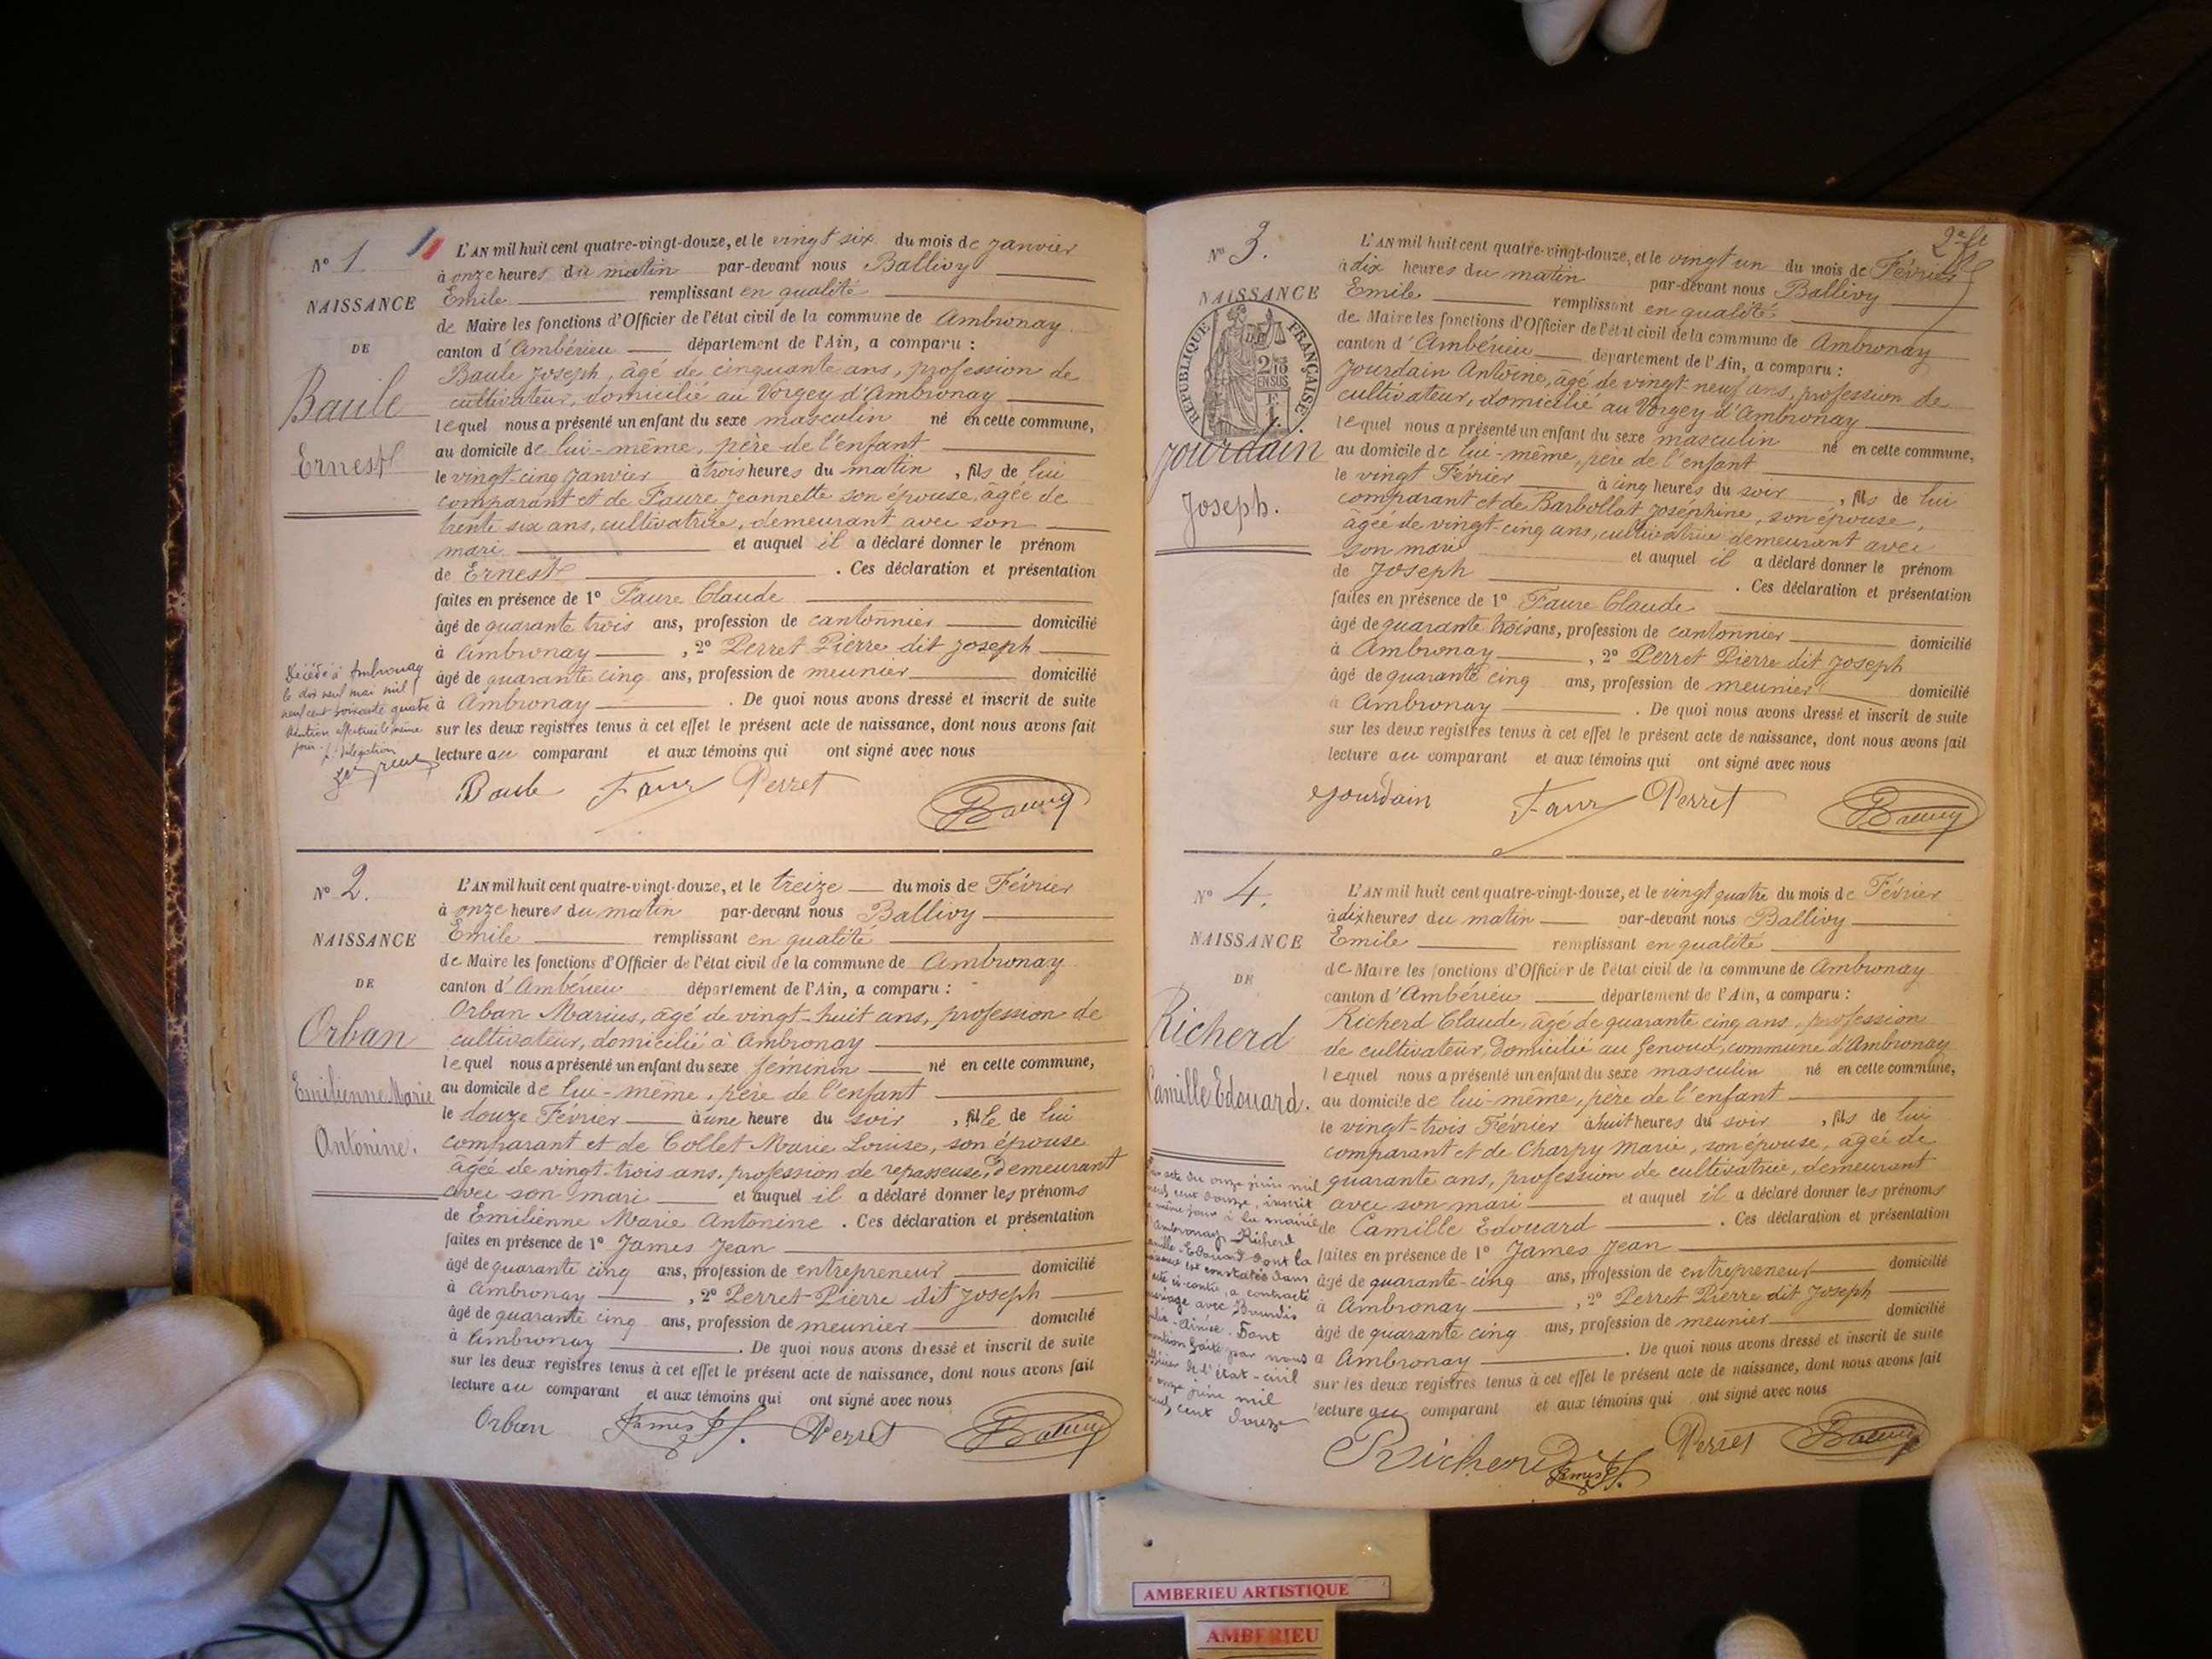 N° 1
NAISSANCE
DE
Baule
Ernest
L'AN mil huit cent quatre-vingt-douze, et le vingt six du mois de Janvier
à onze heures du matin par-devant nous Ballivy
Emile remplissant en qualité
de Maire les fonctions d'Officier de l'état civil de la commune de Ambronay
canton d'Ambérieu département de l'Ain, a comparu :
Baule Joseph, âgé de cinquante ans, profession de
cultivateur, domicilié au Vorgey d'Ambronay
lequel nous a présenté un enfant du sexe masculin né en cette commune,
au domicile de lui-même, père de l'enfant
le vingt-cinq Janvier à trois heures du matin, fils de lui
comparant et de Faure Jeannette son épouse, âgée de
trente six ans, cultivatrice, demeurant avec son
mari et auquel il a déclaré donner le prénom
de Ernest. Ces déclaration et présentation
faites en présence de 1° Faure Claude
âgé de quarante trois ans, profession de cantonnier domicilié
à Ambronay, 2° Perret Pierre dit Joseph
âgé de quarante cinq ans, profession de meunier domicilié
à Ambronay. De quoi nous avons dressé et inscrit de suite
sur les deux registres tenus à cet effet le présent acte de naissance, dont nous avons fait
lecture au comparant et aux témoins qui ont signé avec nous
Baule Faure Perret
Décédé à Ambronay
le dix neuf mai mil
neuf cent soixante quatre
Mention effectuée le même
jour
N° 2.
NAISSANCE
DE
Orban
Emilienne Marie
Antonine.
L'AN mil huit cent quatre-vingt-douze, et le treize du mois de Février
à onze heures du matin par-devant nous Ballivy
Emile remplissant en qualité
de Maire les fonctions d'Officier de l'état civil de la commune de Ambronay
canton d'Ambérieu département de l'Ain, a comparu :
Orban Marius, âgé de vingt-huit ans, profession de
cultivateur, domicilié à Ambronay
lequel nous a présenté un enfant du sexe féminin né en cette commune,
au domicile de lui-même, père de l'enfant
le douze Février à une heure du soir, fille de lui
comparant et de Collet Marie Louise, son épouse
âgée de vingt-trois ans, profession de repasseuse, demeurant
avec son mari et auquel il a déclaré donner les prénoms
de Emilienne Marie Antonine. Ces déclaration et présentation
faites en présence de 1° James Jean
âgé de quarante cinq ans, profession de entrepreneur domicilié
à Ambronay, 2° Perret Pierre dit Joseph
âgé de quarante cinq ans, profession de meunier domicilié
à Ambronay. De quoi nous avons dressé et inscrit de suite
sur les deux registres tenus à cet effet le présent acte de naissance, dont nous avons fait
lecture au comparant et aux témoins qui ont signé avec nous
Orban James Perret
2e ft
N° 3.
NAISSANCE
RÉPUBLIQUE FRANÇAISE.
EN SUS
Jourdain
Joseph.
L'AN mil huit cent quatre-vingt-douze, et le vingt un du mois de Février
à dix heures du matin par-devant nous Ballivy
Emile remplissant en qualité
de Maire les fonctions d'Officier de l'état civil de la commune de Ambronay
canton d'Ambérieu département de l'Ain, a comparu :
Jourdain Antoine, âgé de vingt-neuf ans, profession de
cultivateur, domicilié au Vorgey d'Ambronay
lequel nous a présenté un enfant du sexe masculin né en cette commune,
au domicile de lui-même, père de l'enfant
le vingt Février à cinq heures du soir, fils de lui
comparant et de Barbollat Joséphine, son épouse,
âgée de vingt-cinq ans, cultivatrice demeurant avec
son mari et auquel il a déclaré donner le prénom
de Joseph. Ces déclaration et présentation
faites en présence de 1° Faure Claude
âgé de quarante trois ans, profession de cantonnier domicilié
à Ambronay, 2° Perret Pierre dit Joseph
âgé de quarante cinq ans, profession de meunier domicilié
à Ambronay. De quoi nous avons dressé et inscrit de suite
sur les deux registres tenus à cet effet le présent acte de naissance, dont nous avons fait
lecture au comparant et aux témoins qui ont signé avec nous
Jourdain Faure Perret
N° 4.
NAISSANCE
DE
Richerd
Camille Edouard.
L'AN mil huit cent quatre-vingt-douze, et le vingt quatre du mois de Février
à dix heures du matin par-devant nous Ballivy
Emile remplissant en qualité
de Maire les fonctions d'Officier de l'état civil de la commune de Ambronay
canton d'Ambérieu département de l'Ain, a comparu :
Richerd Claude, âgé de quarante cinq ans, profession
de cultivateur, domicilié au Genoud, commune d'Ambronay
lequel nous a présenté un enfant du sexe masculin né en cette commune,
au domicile de lui-même, père de l'enfant
le vingt-trois Février à huit heures du soir, fils de lui
comparant et de Charpy Marie, son épouse, âgée de
quarante ans, profession de cultivatrice, demeurant
avec son mari et auquel il a déclaré donner les prénoms
de Camille Edouard. Ces déclaration et présentation
faites en présence de 1° James Jean
âgé de quarante-cinq ans, profession de entrepreneur domicilié
à Ambronay, 2° Perret Pierre dit Joseph
âgé de quarante cinq ans, profession de meunier domicilié
à Ambronay. De quoi nous avons dressé et inscrit de suite
sur les deux registres tenus à cet effet le présent acte de naissance, dont nous avons fait
lecture au comparant et aux témoins qui ont signé avec nous
Richerd James Perret
acte du onze juin mil
cent douze, inscrit
même jour à la mairie
Ambronay, Richerd
Edouard dont la
est constatée dans
ci-contre, a contracté
avec
Aimée. Dont
faite par nous
de l'état-civil
onze juin mil
cent douze
AMBERIEU ARTISTIQUE
AMBERIEU